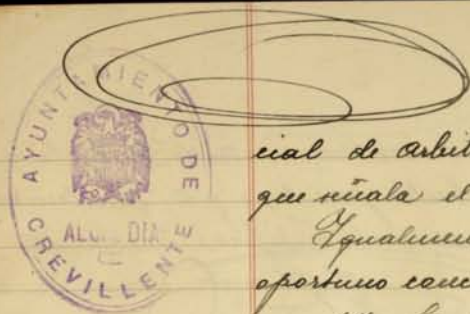 AYUNTAMIENTO DE CREVILLENTE
ALCALDIA
cial de arbit
que señala el
Igualmen
oportuno conc